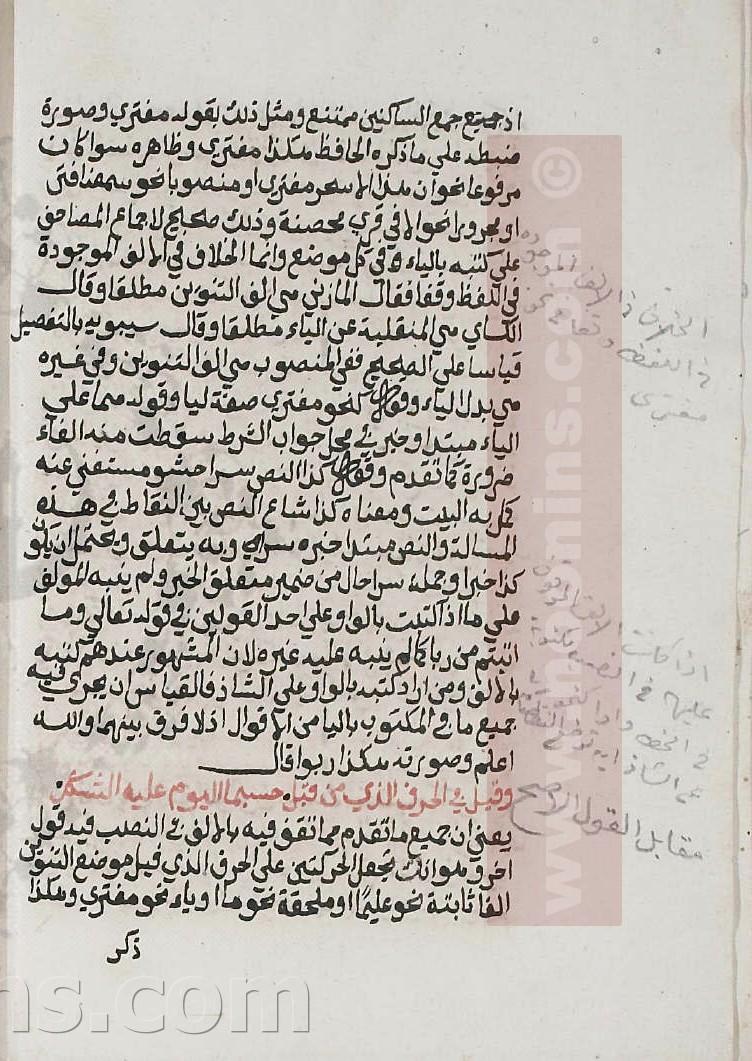 اذ جميع جمع الساكنين ممتنع ومثل ذلك بقوله مفتري وصورة
ضبطه علي ما ذكره الحافظ هكذا مفتري وظاهره سوا كان
مرفوعا نحو ان هذا الا سحر مفتري او منصوبا نحو سمعنا فتي
او مجرورا نحو الا في قري محصنة وذلك صحيح لاجماع المصاحف
علي كتبه بالياء في كل موضع وانما الخلاف في الالف الموجودة
في اللفظ وقفا فقال المازني هي الف التنوين مطلقا وقال
الكساي هي المنقلبة عن الياء مطلقا وقال سيبويه بالتفصيل
قياسا علي الصحيح ففي المنصوب هي الف التنوين وفي غيره
هي بدل الياء وقوله كنحو مفتري صفة ليا وقوله هما علي
الياء مبتدا وخبر في محل جواب الشرط سقطت منه الفاء
ضرورة كما تقدم وقوله كذا النص سرا حشو مستغني عنه
كمل به البيت ومعناه كذا شاع النص بين النقاط في هذه
المسالة والنص مبتدا خبره سري وبه يتعلق ويحتمل ان يكون
كذا خبرا وجملة سرا حال من ضمير متعلق الخبر ولم ينبه المولف
علي ما اذا كتبت بالواو علي احد القولين في قوله تعالي وما
اتيتم من ربا كما لم ينبه عليه غيره لان المشهور عندهم كتبه
بالالف ومن اراد كتبه بالواو علي الشاذ فالقياس ان يجري فيه
جميع ما في المكتوب باليا من الاقوال اذ لا فرق بينهما والله
اعلم وصورته هكذا ربوا قال
وقيل في الحرف الذي من قبل حسبما اليوم عليه الشكل
يعني ان جميع ما تقدم مما تقف فيه بالالف في النصب فيه قول
اخر وهو انك تجعل الحركتين علي الحرف الذي قبل موضع التنوين
الفا ثابتة نحو عليمًا او ملحقة نحو ماا او ياء نحو مفتري وهكذا
ذكر
الخلاف في الالف الموجوده
في اللفظ وقفا نحو
مفتري
اذا كانت الالف
عليه في النصب
في الخط واما
عن الشاذ
مقابل القول الاصح
www.nooonins.com ©
ns.com